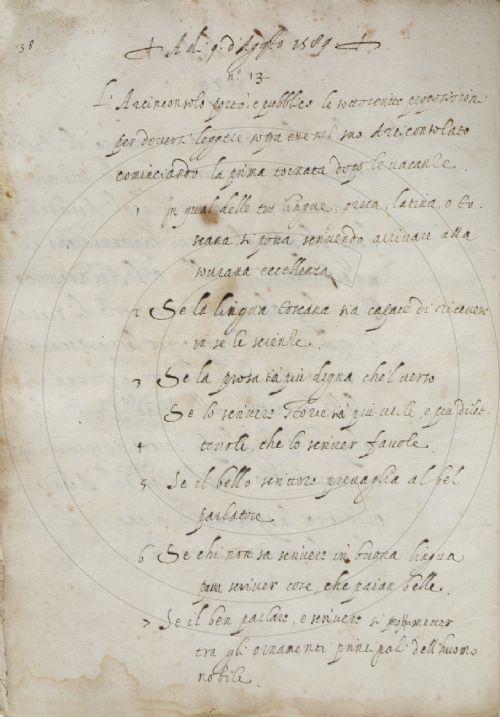 38
A dì 9 d'Agosto 1589
n° 13
L'Arciconsolo portò, e pubblicò le sottoscritte proposizioni
per doversi leggere sopra esse nel suo Arciconsolato
cominciando la prima tornata dopo le vacanze.
1 In qual delle tre lingue, greca, latina, o to-
scana si possa scrivendo arrivare alla
sovrana eccellenza
2 Se la lingua toscana sia capace di ricevere
in se le scienze.
3 Se la prosa sia più degna che'l verso
Se lo scrivere Storie sia più utile, e più dilet-
4 tevole, che lo scriver favole.
5 Se il bello scrittore prevaglia al bel
parlatore
6 Se chi non sa scrivere in buona lingua
possa scriver cose, che paian belle.
7 Se il ben parlare, e scrivere si metter
tra gli ornamenti principali dell'huomo
nobile.